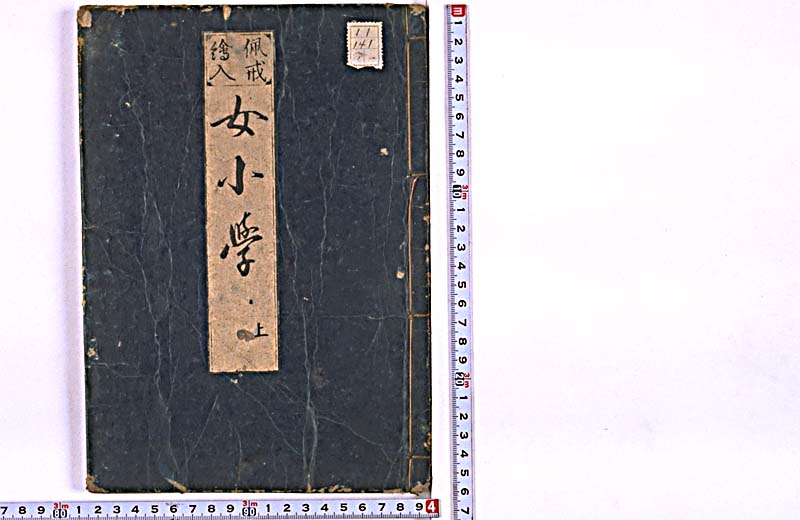 佩戒
繪入
女小學
上
11
141
3m
1 2 3 4 5 6 7 8 9 10
1 2 3 4 5 6 7 8 9 20
1 2 3 4 5 6 7
7 8 9 80 1 2 3 4 5 6 7 8 9 90 1 2 3 4 5 6 7 8 9 4